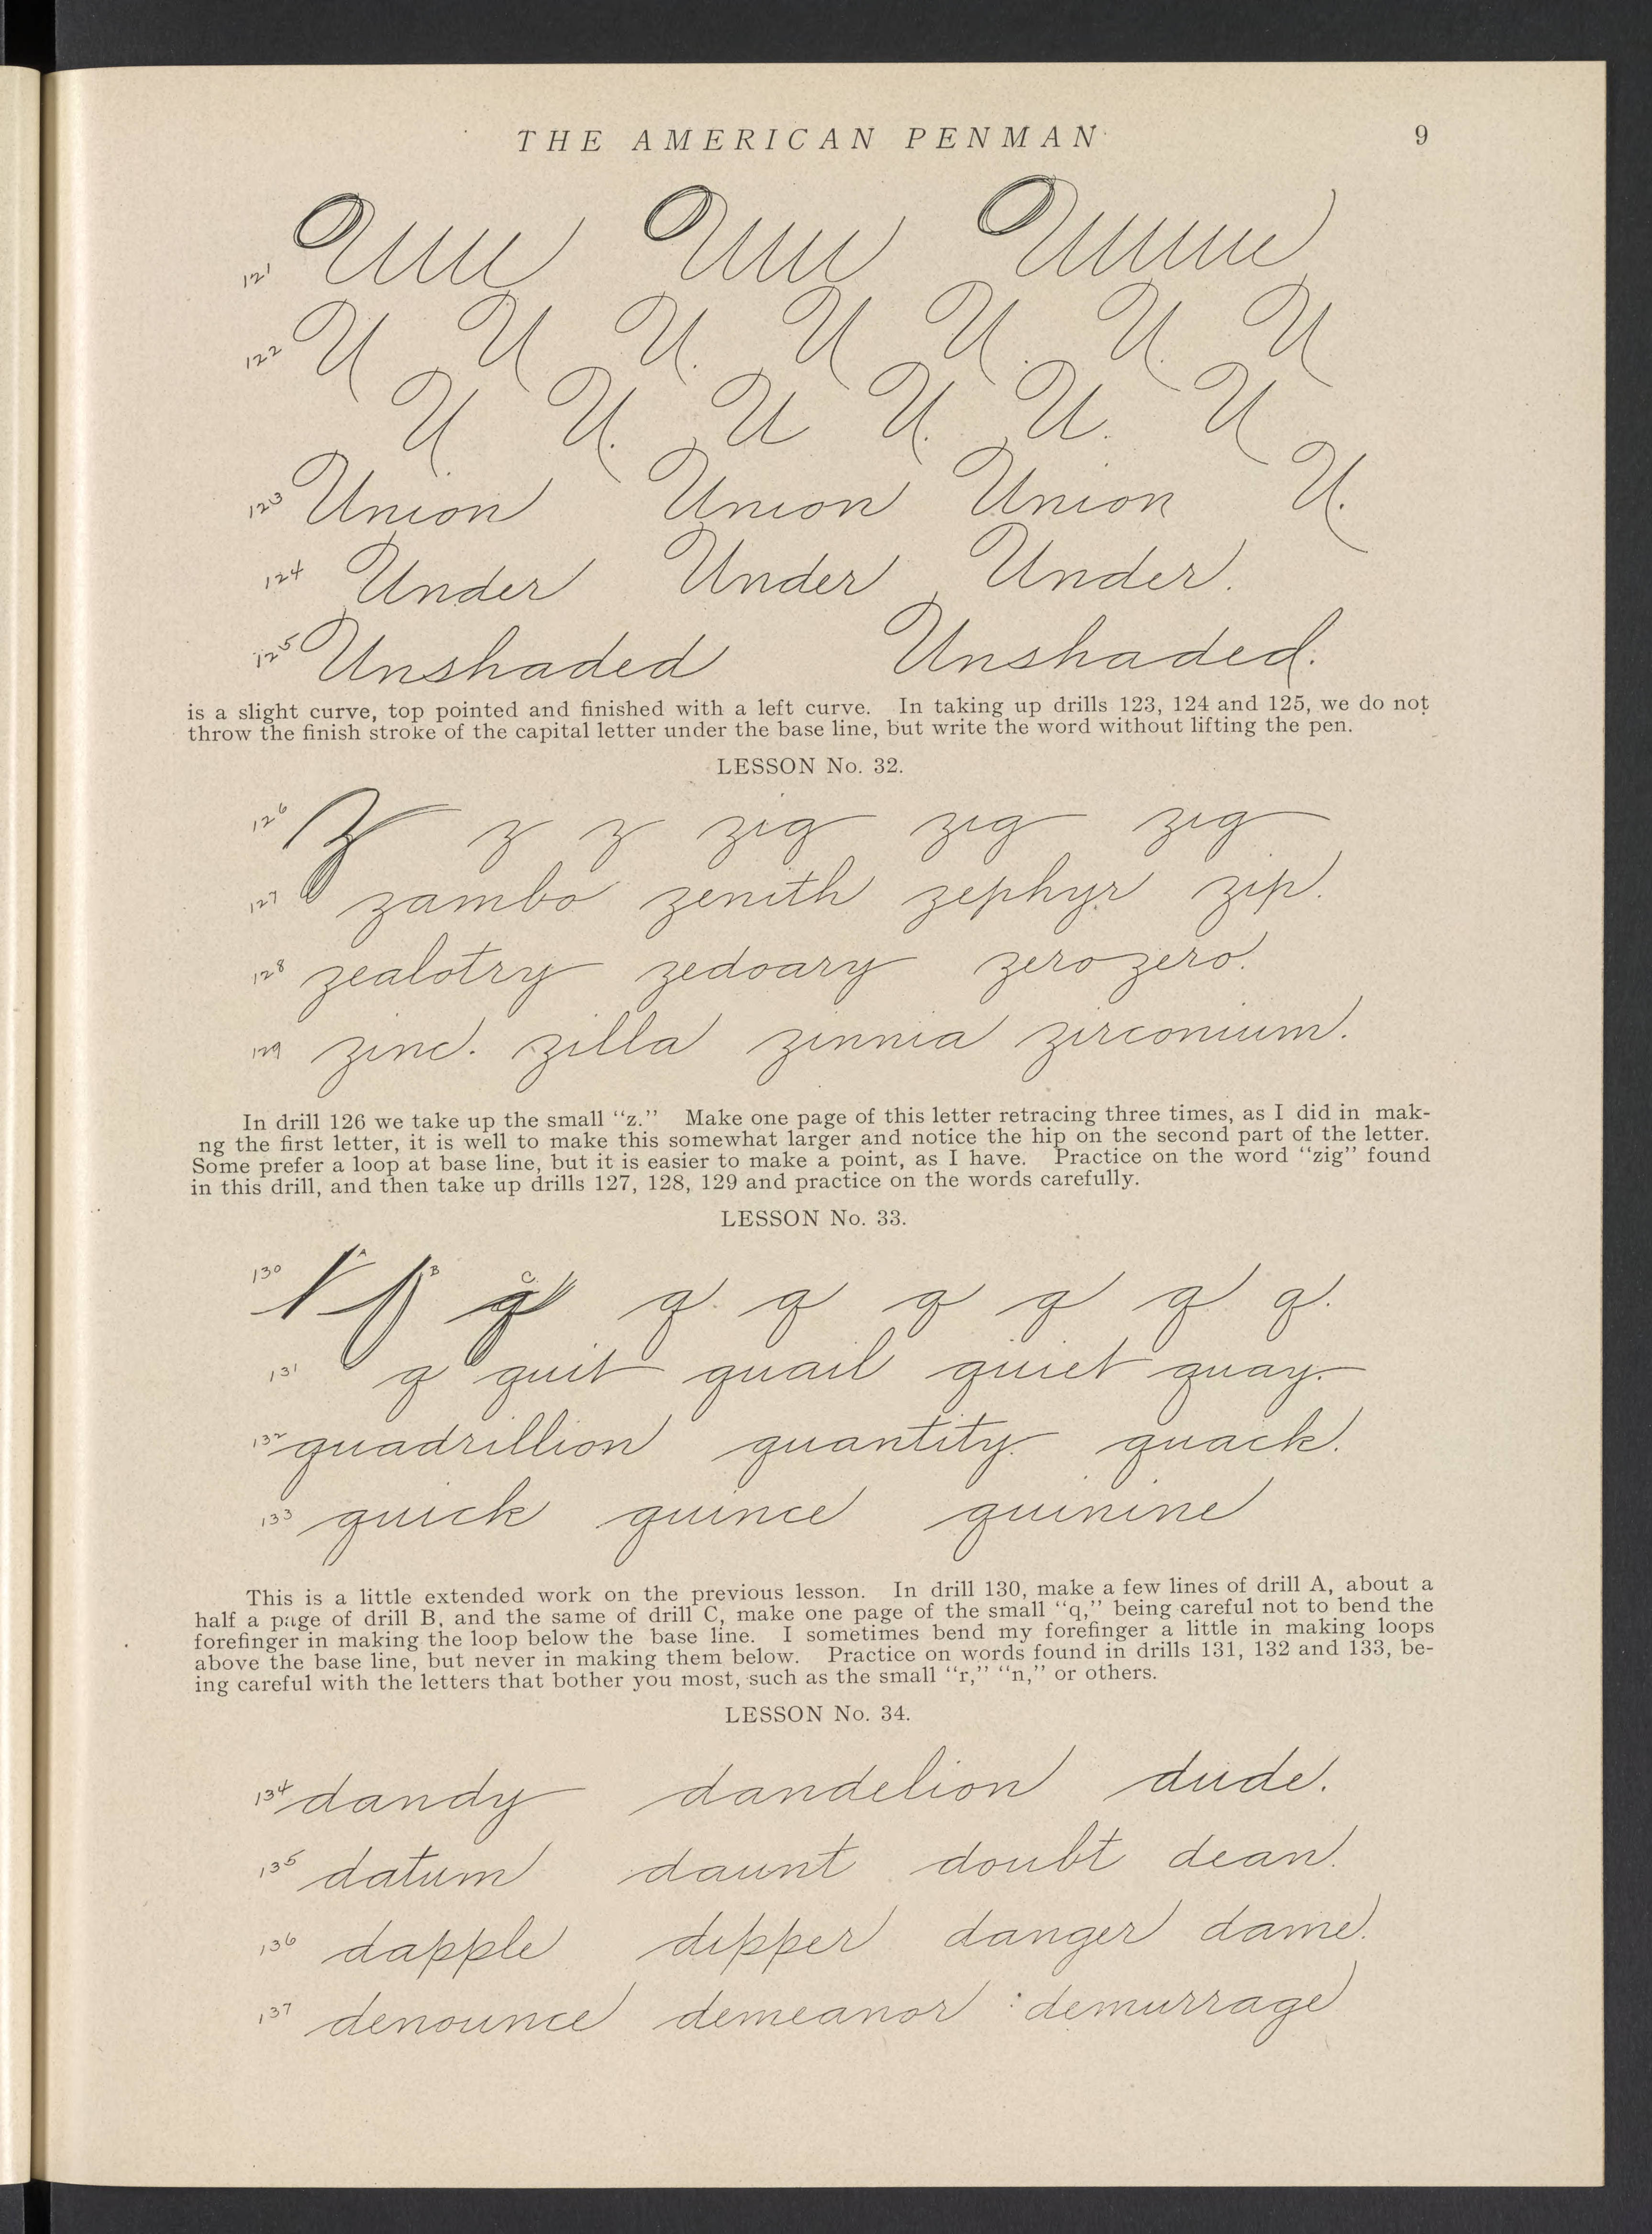 THE AMERICAN PENMAN 9
121
122 U U U. U U. U. U
U U. U U. U. U
123 Union Union Union U.
124 Under Under Under.
125 Unshaded Unshaded.
is a slight curve, top pointed and finished with a left curve. In taking up drills 123, 124 and 125, we do not
throw the finish stroke of the capital letter under the base line, but write the word without lifting the pen.
LESSON No. 32.
126 z z z zig zig zig
127 zambo zenith zephyr zip.
128 zealotry zedoary zero zero.
129 zinc. zilla zinnia zirconium.
In drill 126 we take up the small “z.” Make one page of this letter retracing three times, as I did in mak-
ng the first letter, it is well to make this somewhat larger and notice the hip on the second part of the letter.
Some prefer a loop at base line, but it is easier to make a point, as I have. Practice on the word “zig” found
in this drill, and then take up drills 127, 128, 129 and practice on the words carefully.
LESSON No. 33.
130 A B C q q. q q q q q.
131 q quit quail quiet quay.
132 quadrillion quantity. quack.
133 quick quince quinine
This is a little extended work on the previous lesson. In drill 130, make a few lines of drill A, about a
half a page of drill B, and the same of drill C, make one page of the small “q,” being careful not to bend the
forefinger in making the loop below the base line. I sometimes bend my forefinger a little in making loops
above the base line, but never in making them below. Practice on words found in drills 131, 132 and 133, be-
ing careful with the letters that bother you most, such as the small “r,” “n,” or others.
LESSON No. 34.
134 dandy dandelion dude.
135 datum daunt doubt dean.
136 dapple dipper danger dame.
137 denounce demeanor demurrage